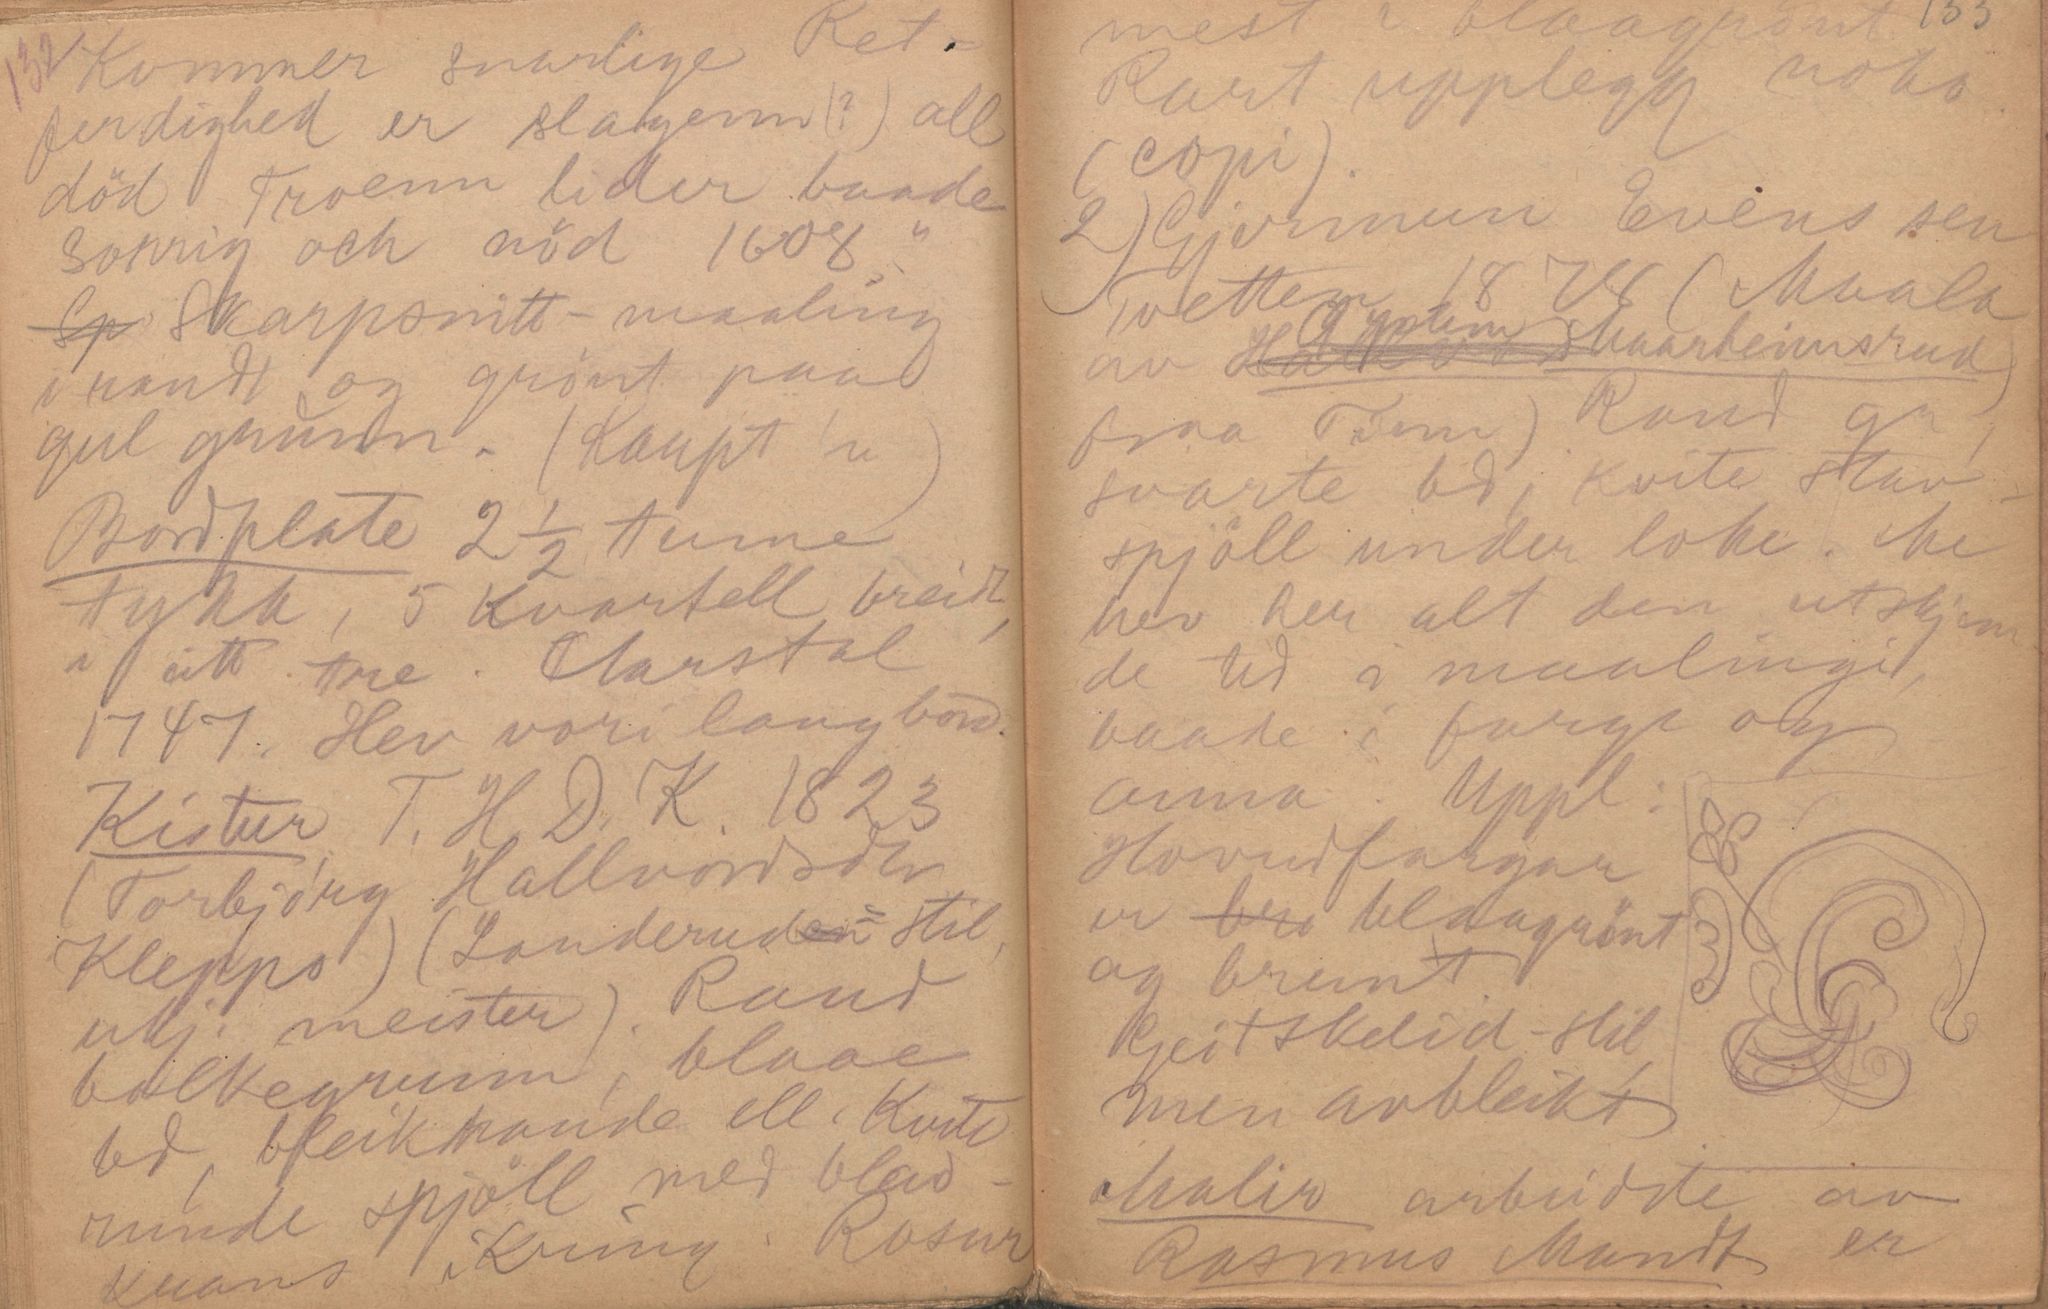 132
Kommer snarlige Ret-
ferdighed er slagenn (?) all
död Troenn lider baade
Sorrig och nöd 1608 "
Sp Skarpsnitt-maaling
i raudt og grönt paa
gul grunn. (Kaupt 'n)
Bordplate 2 1/2 tume
tykk, 5 kvartell breidt,
i eitt tre. Aarstal
1747. Hev vori langbord.
Kistur, T. H. D. K. 1823
(Torbjörg Hallvordsdtr
Klepps) (Landeruden = stil,
ukj. meister). Raud
balkegrunn, blaae
bd, bleikraude ell. kvite
runde spjöll med blad-
krans ikring. Rosur
133
mest i blaagrönt
Rart upplegg noko
(copi).
2) Gjermun Evens sen
Tvetten 1878 (Maala
av Öystein Maarheimsrud)
fraa Tinn) Raud gr,
svarte bd, kvite stav-
spjöll under loke. Me
hev her alt den utskjem
de tid i maalingi,
baade i farge og
anna. Uppl:
Hovudfargar
er bra blaagrönt
og brunt
Gjeitskelid-stil,
men avbleikt
Malir arbeidste av
Rasmus Mandt er